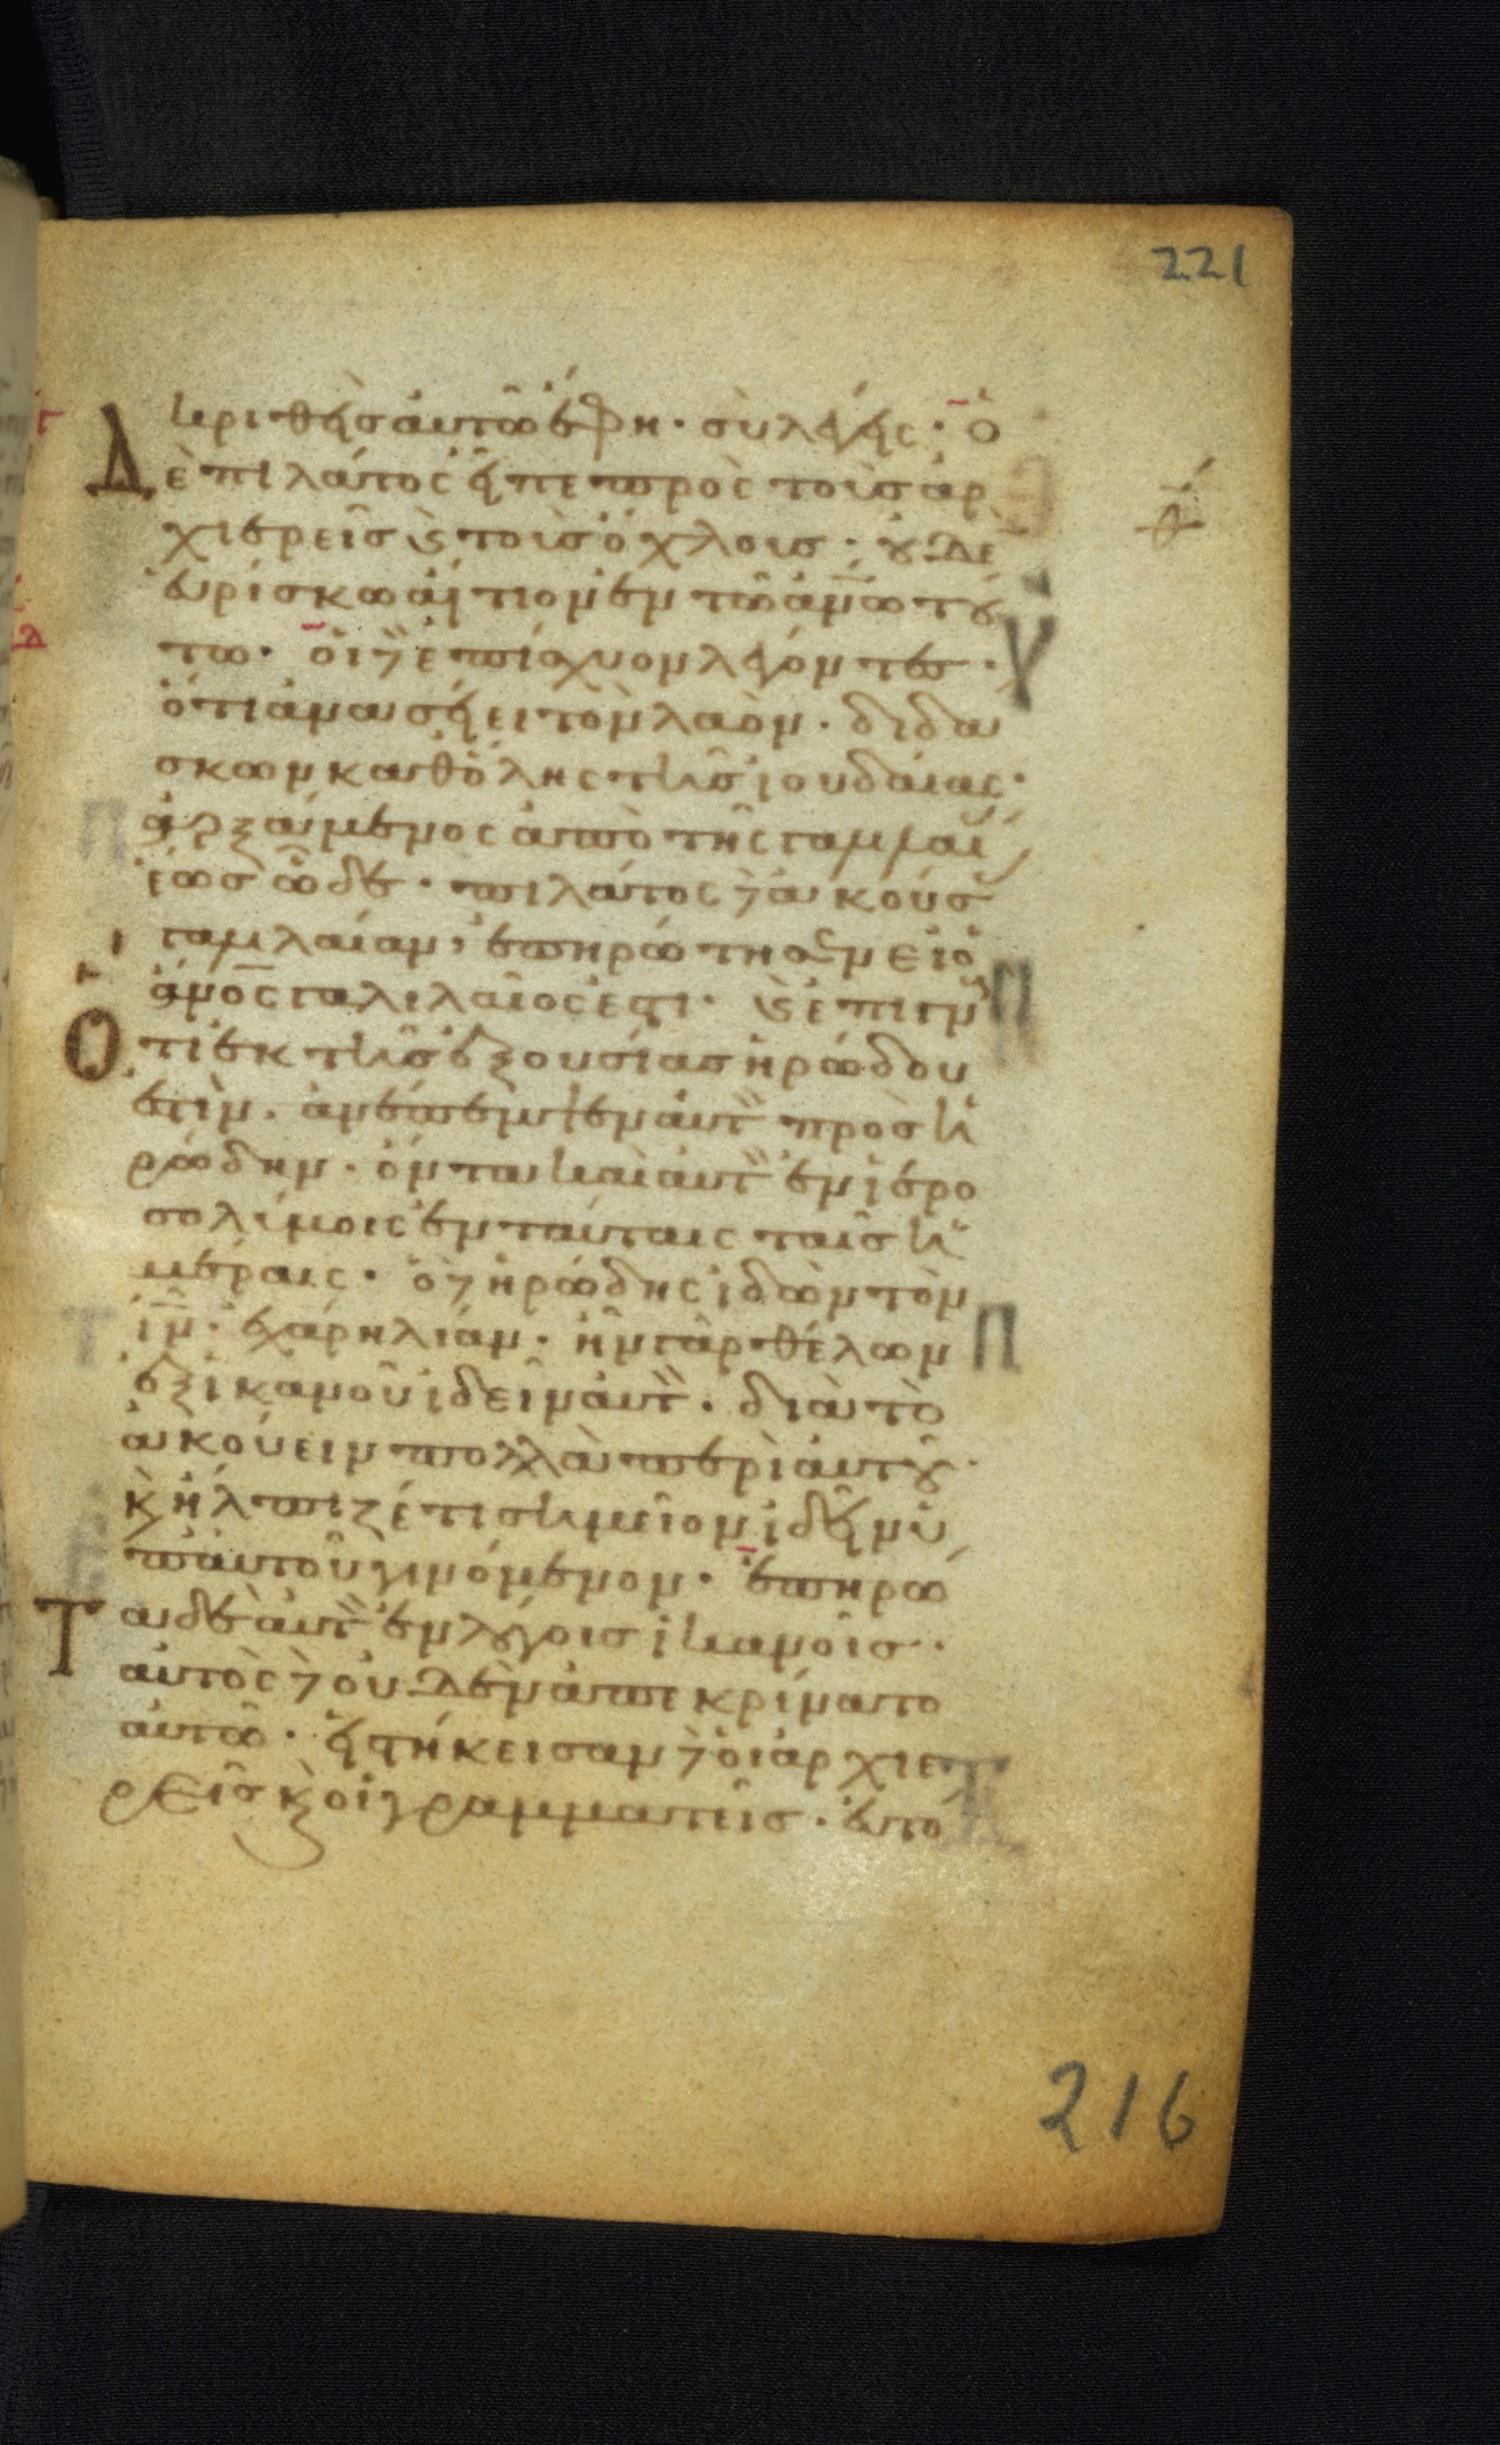 221
κριθεὶς αὐτῶ ἔφη · σὺ λέγεις · ὁ
Δὲ πιλάτος εἶπε πρὸς τοὺς ἀρ
χιερεῖς ϗ τοὺς ὄχλους · οὐδὲ
εὑρίσκω αἴτιον ἐν τῶ ἀν̅ω τού
τω · οἱ δὲ ἐπίσχυον λέγοντες ·
ὅτι ἀνασείει τὸν λαὸν · διδά
σκων καθ' ὅλης τῆς ἰουδαίας ·
ἀρξάμενος ἀπὸ τῆς γαλιλαί
ἕως ὧδε · πιλάτος δὲ ἀκούσ
γαλιλαίαν, ἐπηρώτησεν εἰ ὁ
ἀν̅ος γαλιλαῖός ἐστι · ϗ ἐπιγν
Ὅτι ἐκ τῆς ἐξουσίας ἡρώδου
ἐστὶν · ἀνέπεμψεν αὐτ πρὸς ἡ
ρώδην · ὄντα καὶ αὐτ ἐν ἱερο
σολύμοις ἐν ταύταις ταῖς ἡ
μέραις · ὁ δὲ ἡρώδης ἰδὼν τὸν
ιν̅ · ἐχάρη λίαν · ἦν γὰρ θέλων
ἐξ ἱκανοῦ ἰδεῖν αὐτ · διὰ τὸ
ἀκούειν πολλὰ περὶ αὐτοῦ ·
ϗ ἤλπιζέ τι σημεῖον ἰδεῖν ὑ
π' αὐτοῦ γινόμενον · ἐπηρώ
Τα δὲ αὐτ ἐν λόγοις ἱκανοῖς ·
αὐτὸς δὲ οὐδὲν ἀπεκρίνατο
αὐτῶ · εἱστήκεισαν δὲ οἱ ἀρχιε
ρεῖς ϗ οἱ γραμματεῖς · εὐτό
216